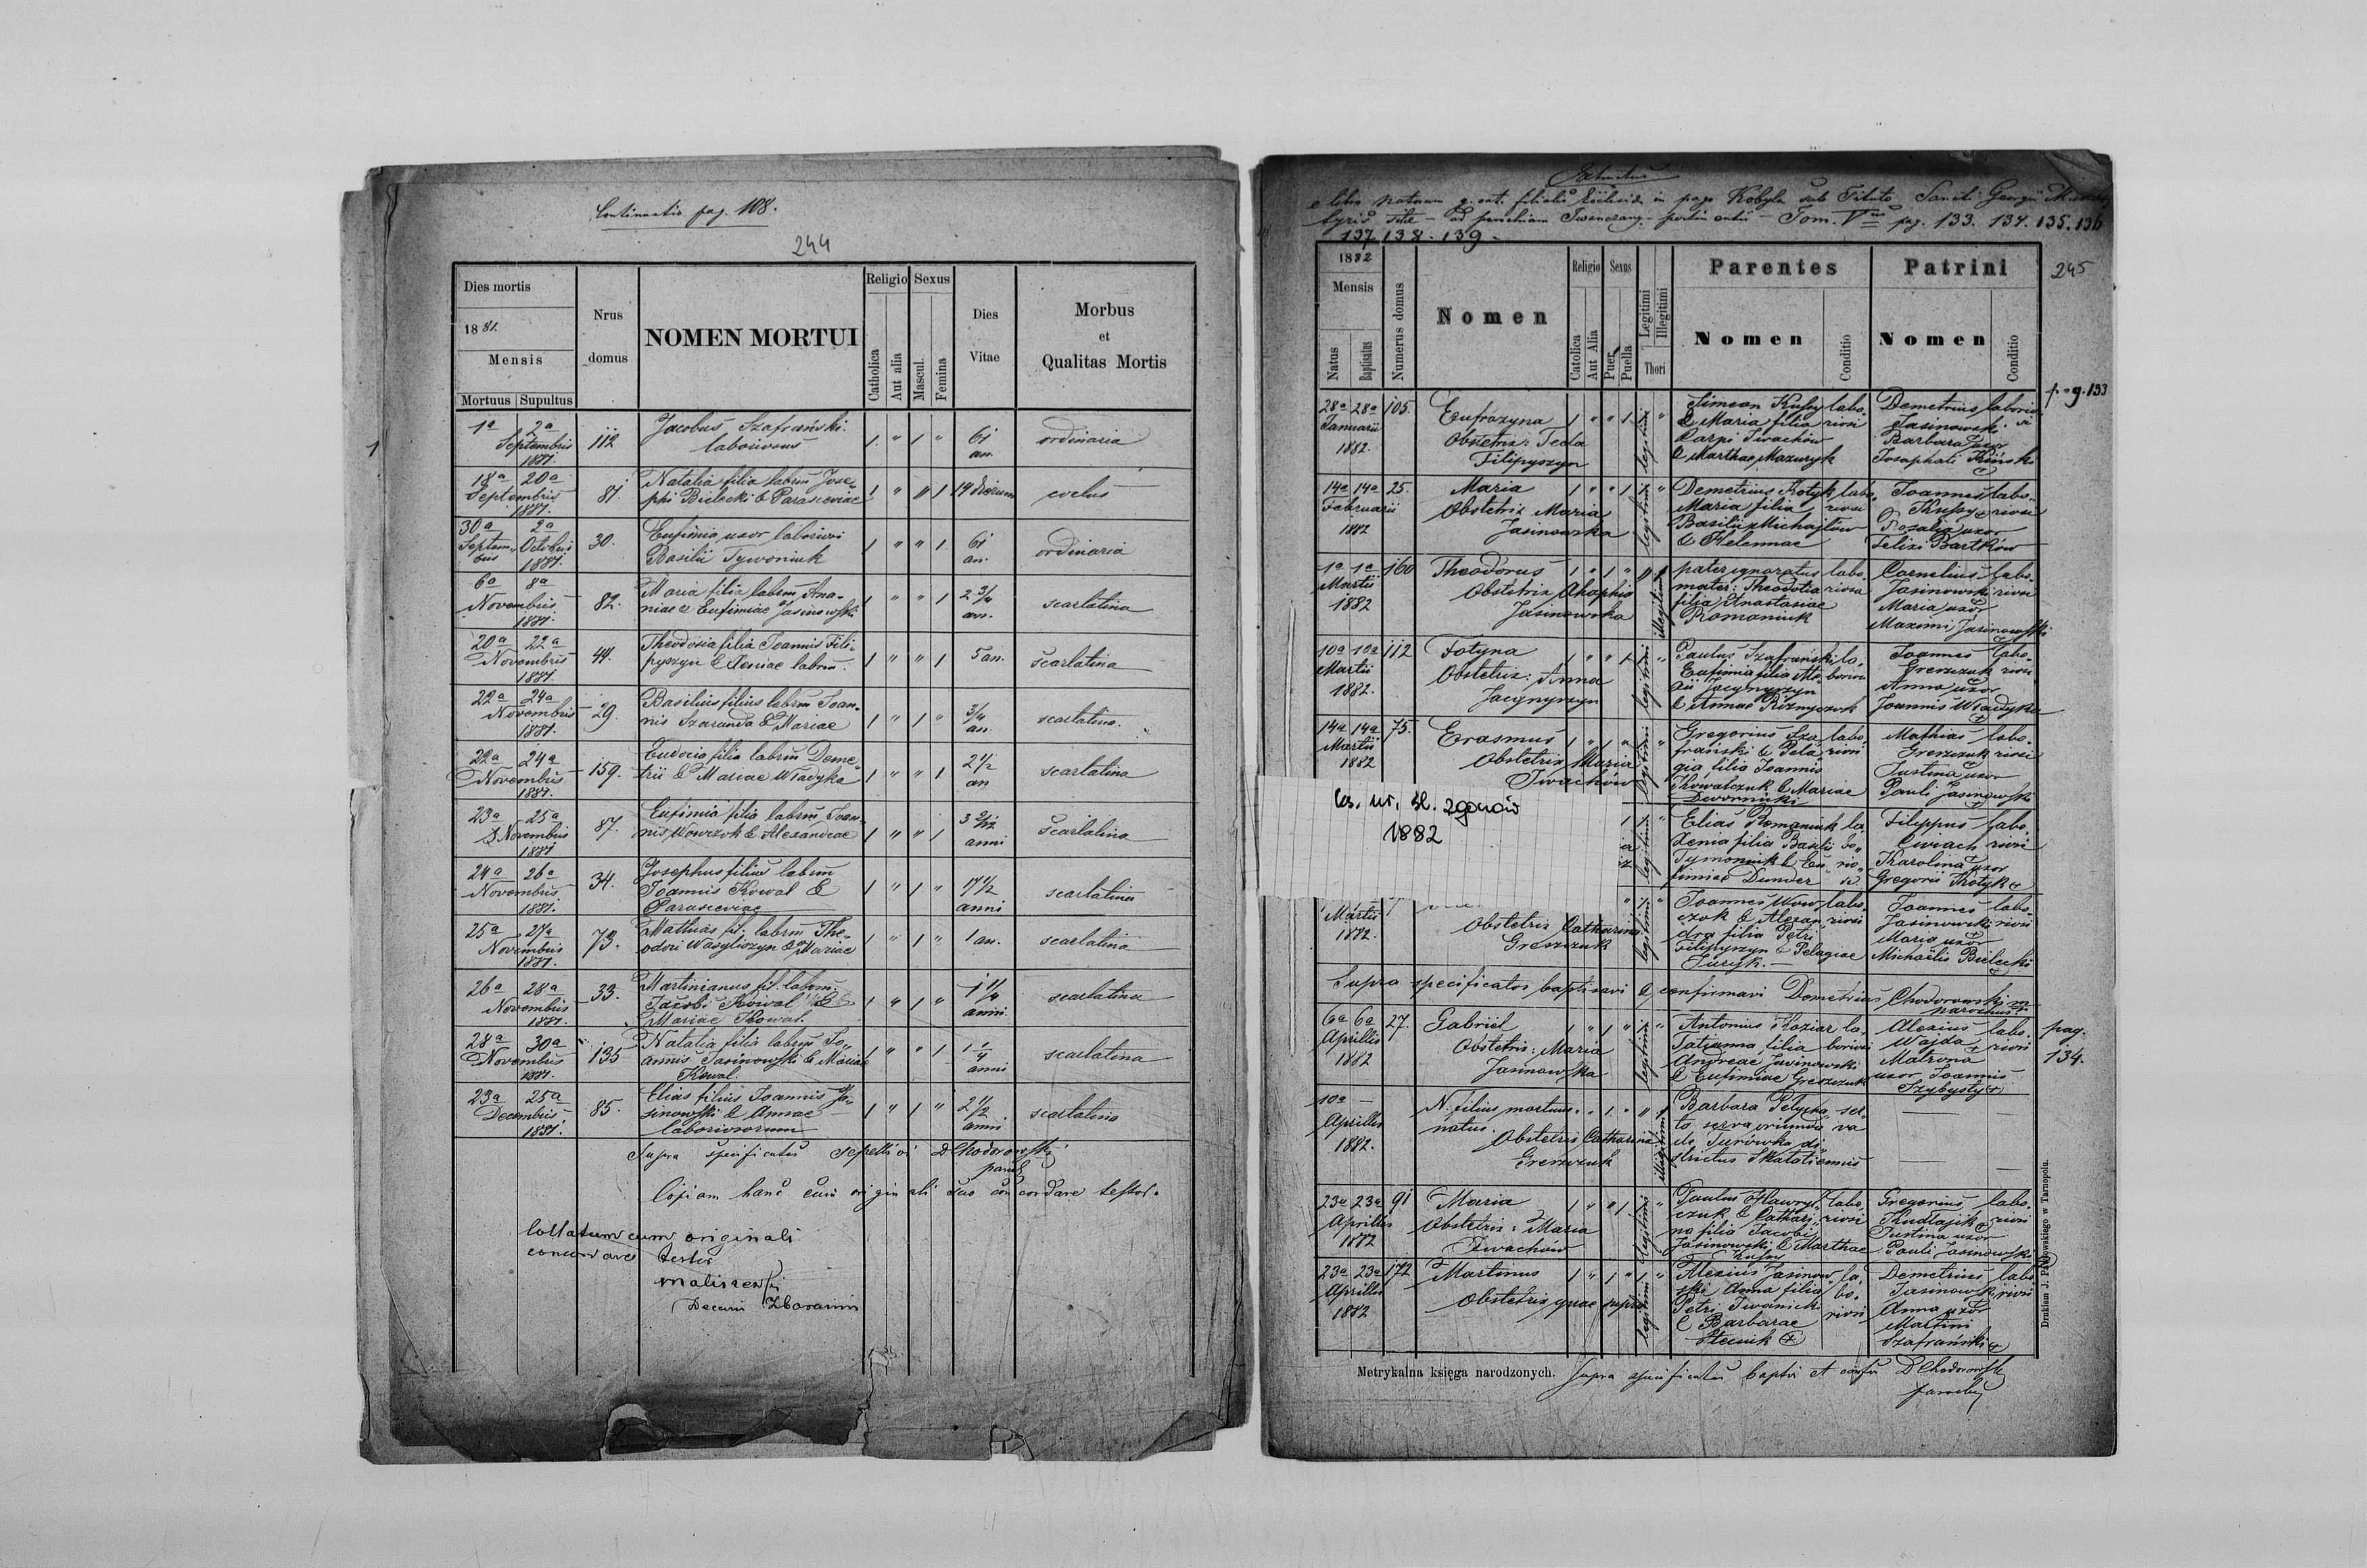 Continuatio pag. 108.
244
Dies mortis
1881.
Mensis
Mortuus Supultus
Nrus
domus
NOMEN MORTUI
Religio
Catholica
Aut alia
Sexus
Mascul.
Femina
Dies
Vitae
Morbus
et
Qualitas Mortis
1
1a 2a
Septembris
1881.
112
Jacobus Szafrański
laboriosus
1 " 1 "
61
an.
ordinaria
18a 20a
Septembris
1881.
81.
Natalia filia labrm Jose-
phi Bielecki & Parasceviae
1 " " 1
14 dierum
30a 2a
Septem- Octobris
bris 1881.
30.
Eufimia uxor laboriosi
Basilii Tywoniuk
1 " " 1
61
an.
ordinaria
6a 8a
Novembris
1881.
82.
Maria filia labrm Ana-
niae & Eufimiae Jasinowski
1 " " 1
2 3/4
an.
scarlatina
20a 22a
Novembris
1881.
44.
Theodosia filia Joannis Fili-
pyszyn & Xeniae labrm.
1 " " 1
5 an.
scarlatina
22a 24a
Novembris
1881.
29.
Basilius filius labrm Joan-
nis Szaranda & Mariae
1 " 1 "
3/4
an.
scarlatina.
22a 24a
Novembris
1881.
159.
Eudocia filia labrm Deme-
trii & Mariae Władyka
1 " " 1
2 1/2
an
scarlatina
23a 25a
Novembris
1881
87.
Eufimia filia labrm Joan-
nis Wowczok & Alexandrae
1 " " 1
anni
scarlatina
24a 26a
Novembris
1881.
34.
Josephus filius labrm
Joannis Kowal &
Parasceviae
1 " 1 "
anni
scarlatina
25a 27a
Novembris
1881.
73.
Mathias fil. labrm The-
odori Wasyliszyn & Mariae
1 " 1 "
1 an.
scarlatina
26a 28a
Novembris
1881.
33.
Martinianus fil. labrm.
Jacobi Kowal &
Mariae Kowal.
1 " 1 "
anni.
scarlatina
28a 30a
Novembris
1881.
135
Natalia filia labrm Jo-
annis Jasinowski & Mariae
Kowal.
1 " " 1
1 1/4
anni
scarlatina
23a 25a
Decembris
1881.
85.
Elias filius Joannis Ja-
sinowski & Annae
laboriosorum
1 " 1 "
anni
scarlatina
Supra specificatos sepelivi DChodorowski
paroch
Copiam hanc cum originali suo concordare testor.
Collatum cum originali
concordare testor
Decani Zbaraziensis
e libro natorum g. cat. filialis Ecclesiae in pago Kobyla sub Titulo Sancti Georgii Mar-
tyris sitae - ad parochiam Iwanczany - pertinentis - Tom. V pag. 133. 134. 135. 136
137 138. 139.
245
1882
Mensis
Natus
Baptisatus
Numerus domus
Nomen
Religio
Catolica
Aut Alia
Sexus
Puer
Puella
Legitimi
Illegitimi
Thori
Parentes
Nomen
Conditio
Patrini
Nomen
Conditio
pag. 133
28a 28a
Januarii
1882.
105.
Eufrozyna
Obstetrix: Tecla
Filipyszyn
1 " " 1
legitimi "
Simeon Kufry labo-
& Maria filia riosi
Carpi Iwachów
& Marthae Mazuryk
Demetrius laborio-
Jasinowski si
Barbara uxor
Josaphati Kiński
14a 14a
Februarii
1882
25.
Maria
Obstetrix Maria
Jasinowska
1 " " 1
legitimi "
Demetrius Kotyk labo-
Maria filia riosi
Basilii Michajłów
& Helennae
Joannes labo-
Kufry riosi
Rosalia uxor
Felixi Bartków
1a 1a
Martii
1882
160
Theodorus
Obstetrix Ahaphia
Jasinowska
1 " 1 "
" illegitimi
pater ignoratus labo-
mater: Theodotia riosa
filia Anastasiae
Romaniuk
Cornelius labo-
Jasinowski riosi
Maria uxor
Maximi Jasinowski
10a 10a
Martii
1882.
112
Fotyna
Obstetrix: Anna
Jacynyszyn
1 " " 1
legitimi "
Paulus Szafrański la-
Eufimia filia boriosi
Jacynyszyn
& Annae Riznyczok
Joannes labo-
Greszczuk riosi
Anna uxor
Joannis Władyka
14a 14a
Martii
1882
75.
Erasmus
Obstetrix Maria
Iwachów
1 " 1 "
legitimi "
Gregorius Sza- labo-
frański & Pela- riosi
gia filia Joannis
Kowalczuk & Mariae
Dwornicki
Mathias labo-
Greszczuk riosi
Justina uxor
Pauli Jasinowski
Ks. ur. śl. zgonów
1882
legitimi "
Elias Romaniuk la-
Xenia filia Basilii bo-
Tymoniuk & Eu- rio-
fimiae Dunder si
Filippus labo-
Cwiach riosi
Karolina uxor
Gregorii Kotyk
Martii
1882.
Obstetrix Catharina
Greszczuk
legitimi "
Joannes Wow- labo-
czok & Alexan- riosi
dra filia Petri
Filipyszyn & Pelagiae
Juryk.
Joannes labo-
Jasinowski riosi
Maria uxor
Michaëlis Bielecki
Supra specificatos baptisavi & confirmavi Demetrius Chodorowski
parochus
6a 6a
Aprillis
1882
27.
Gabriel
Obstetrix: Maria
Jasinowska
1 " 1 "
legitimi "
Antonius Koziar la-
Tatianna filia boriosi
Andreae Jasinowski
& Eufimiae Greszczuk
Alexius labo-
Wajda riosi
Matrona
uxor Joannis
Szybysty
pag.
134.
10a -
Aprillis
1882.
N. filius mortuus
natus.
Obstetrix Catharina
Greszczuk
" " 1 "
" illegitimi
Barbara Petycka ser-
to serva oriunda va
de Turówka di-
strictus Skałatiensis
23a 23a
Aprillis
1882
91
Maria
Obstetrix: Maria
Iwachów
1 " " 1
legitimi "
Paulus Hawryl- labo-
czuk & Cathari- riosi
na filia Jacobi
Jasinowski & Marthae
Kufry
Gregorius labo-
Kudłajik riosi
Justina uxor
Pauli Jasinowski
23a 23a
Aprillis
1882
172
Martinus
Obstetrix quae supra
1 " 1 "
legitimi "
Alexius Jasinow- la-
ski Anna filia bo-
Petri Iwanicki riosi
& Barbarae
Stecuik
Demetrius labo-
Jasinowski riosi
Anna uxor
Martini
Szafrański
Drukiem J. Pawłowskiego w Tarnopolu.
Metrykalna księga narodzonych.
Supra specificatos bapti et confir DChodorowski
paroch